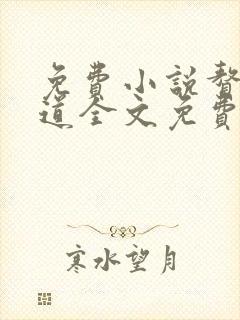 免費小說督
道全文免費
寒水望月